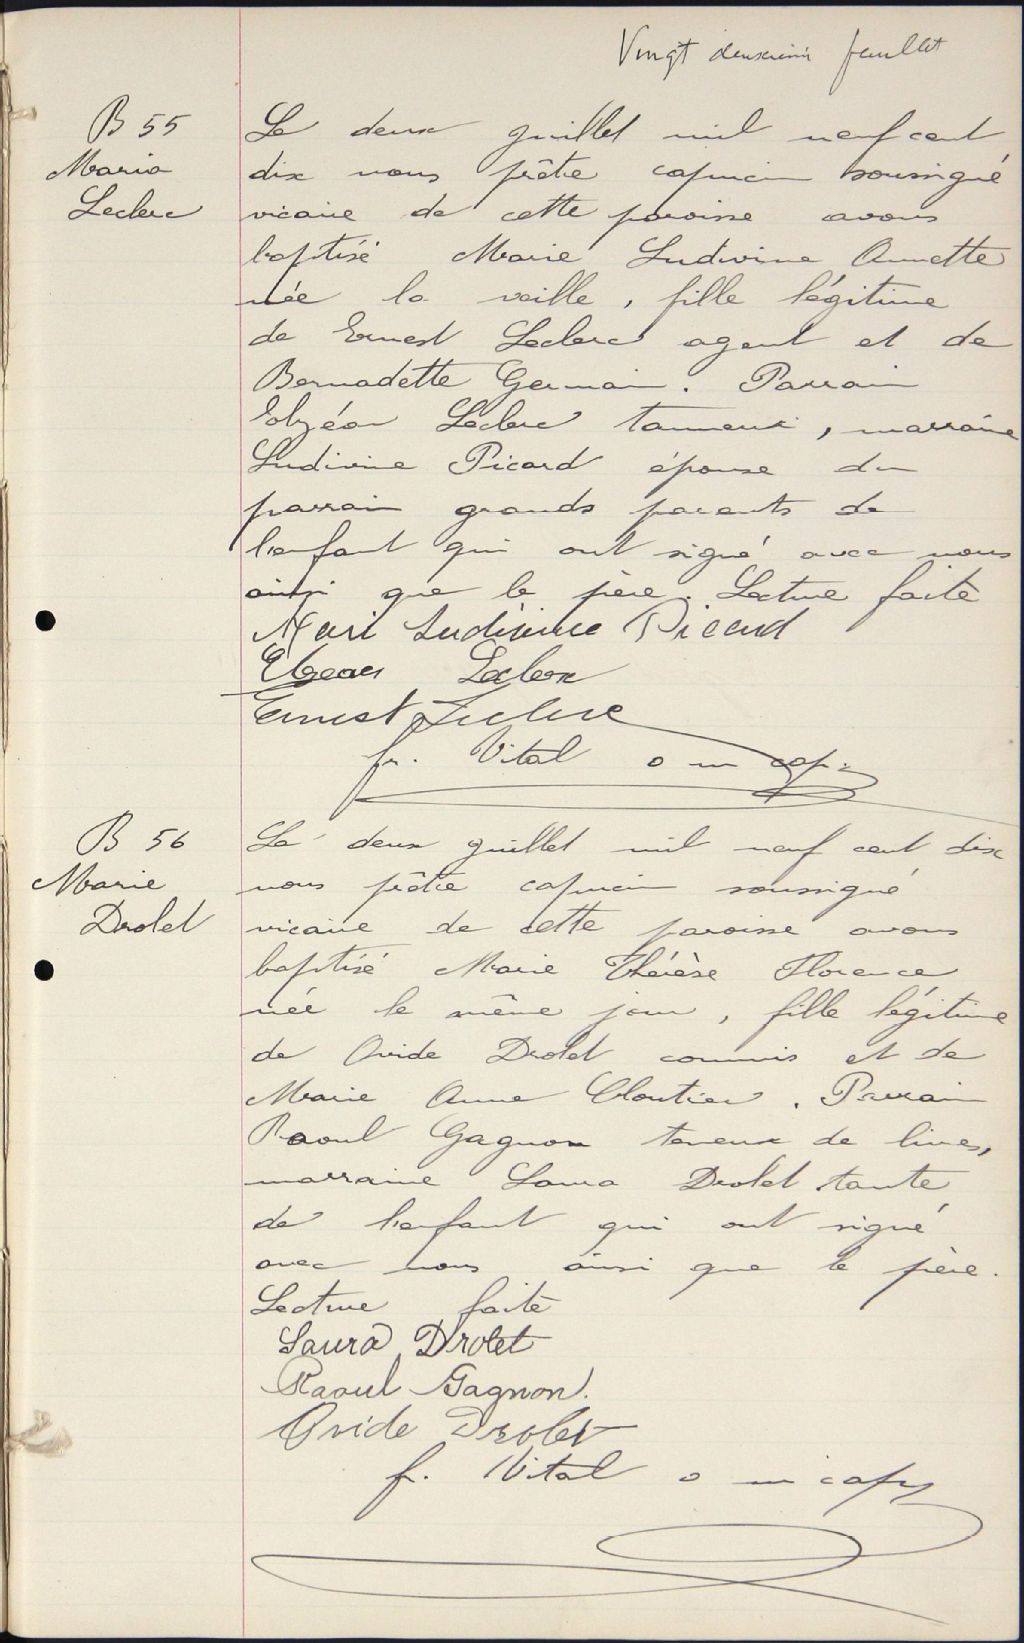 Vingt deuxième feuillet
B 55
Maria
Leclerc
Le deux juillet mil neuf cent
dix nous prêtre capucin soussigné
vicaire de cette paroisse avons
baptisé Marie Ludivine Annette
née la veille, fille légitime
de Ernest Leclerc agent et de
Bernadette Germain. Parrain
Elzéar Leclerc tanneur, marraine
Ludivine Picard épouse du
parrain grands parents de
l'enfant qui ont signé avec nous
ainsi que le père. Lecture faite
Mari Ludivine Picard
Elzear Leclerc
Ernest Leclerc
fr. Vital o m cap.
B 56
Marie
Drolet
Le deux juillet mil neuf cent dix
nous prêtre capucin soussigné
vicaire de cette paroisse avons
baptisé Marie Thérèse Florence
née le même jour, fille légitime
de Ovide Drolet commis et de
Marie Anne Cloutier. Parrain
Raoul Gagnon teneur de livres,
marraine Laura Drolet tante
de l'enfant qui ont signé
avec nous ainsi que le père.
Lecture faite
Laura Drolet
Raoul Gagnon.
Ovide Drolet
fr. Vital o m cap